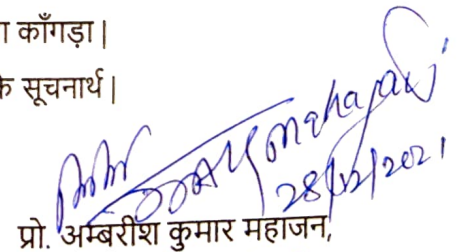 ा काँगड़ा |
के सूचनार्थ |
Mahajan
28/12/2021
प्रो. अम्बरीश कुमार महाजन,